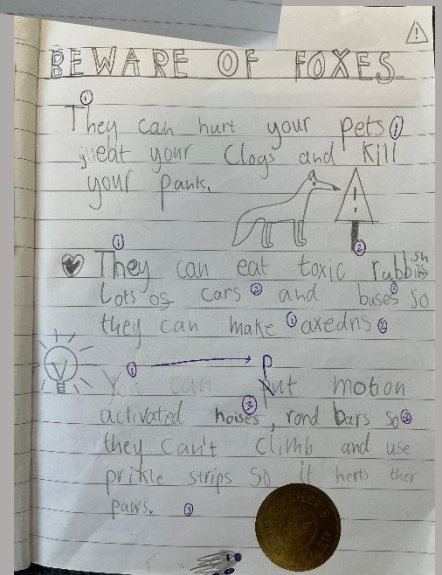 BEWARE OF FOXES
They can hurt your pets
eat your Clogs and Kill
your pants.
They can eat toxic rubbish
Lots of cars and buses so
they can make axedns
You can put motion
activated noises, rond bars so
they can't climb and use
prikle strips so it herts ther
paws.